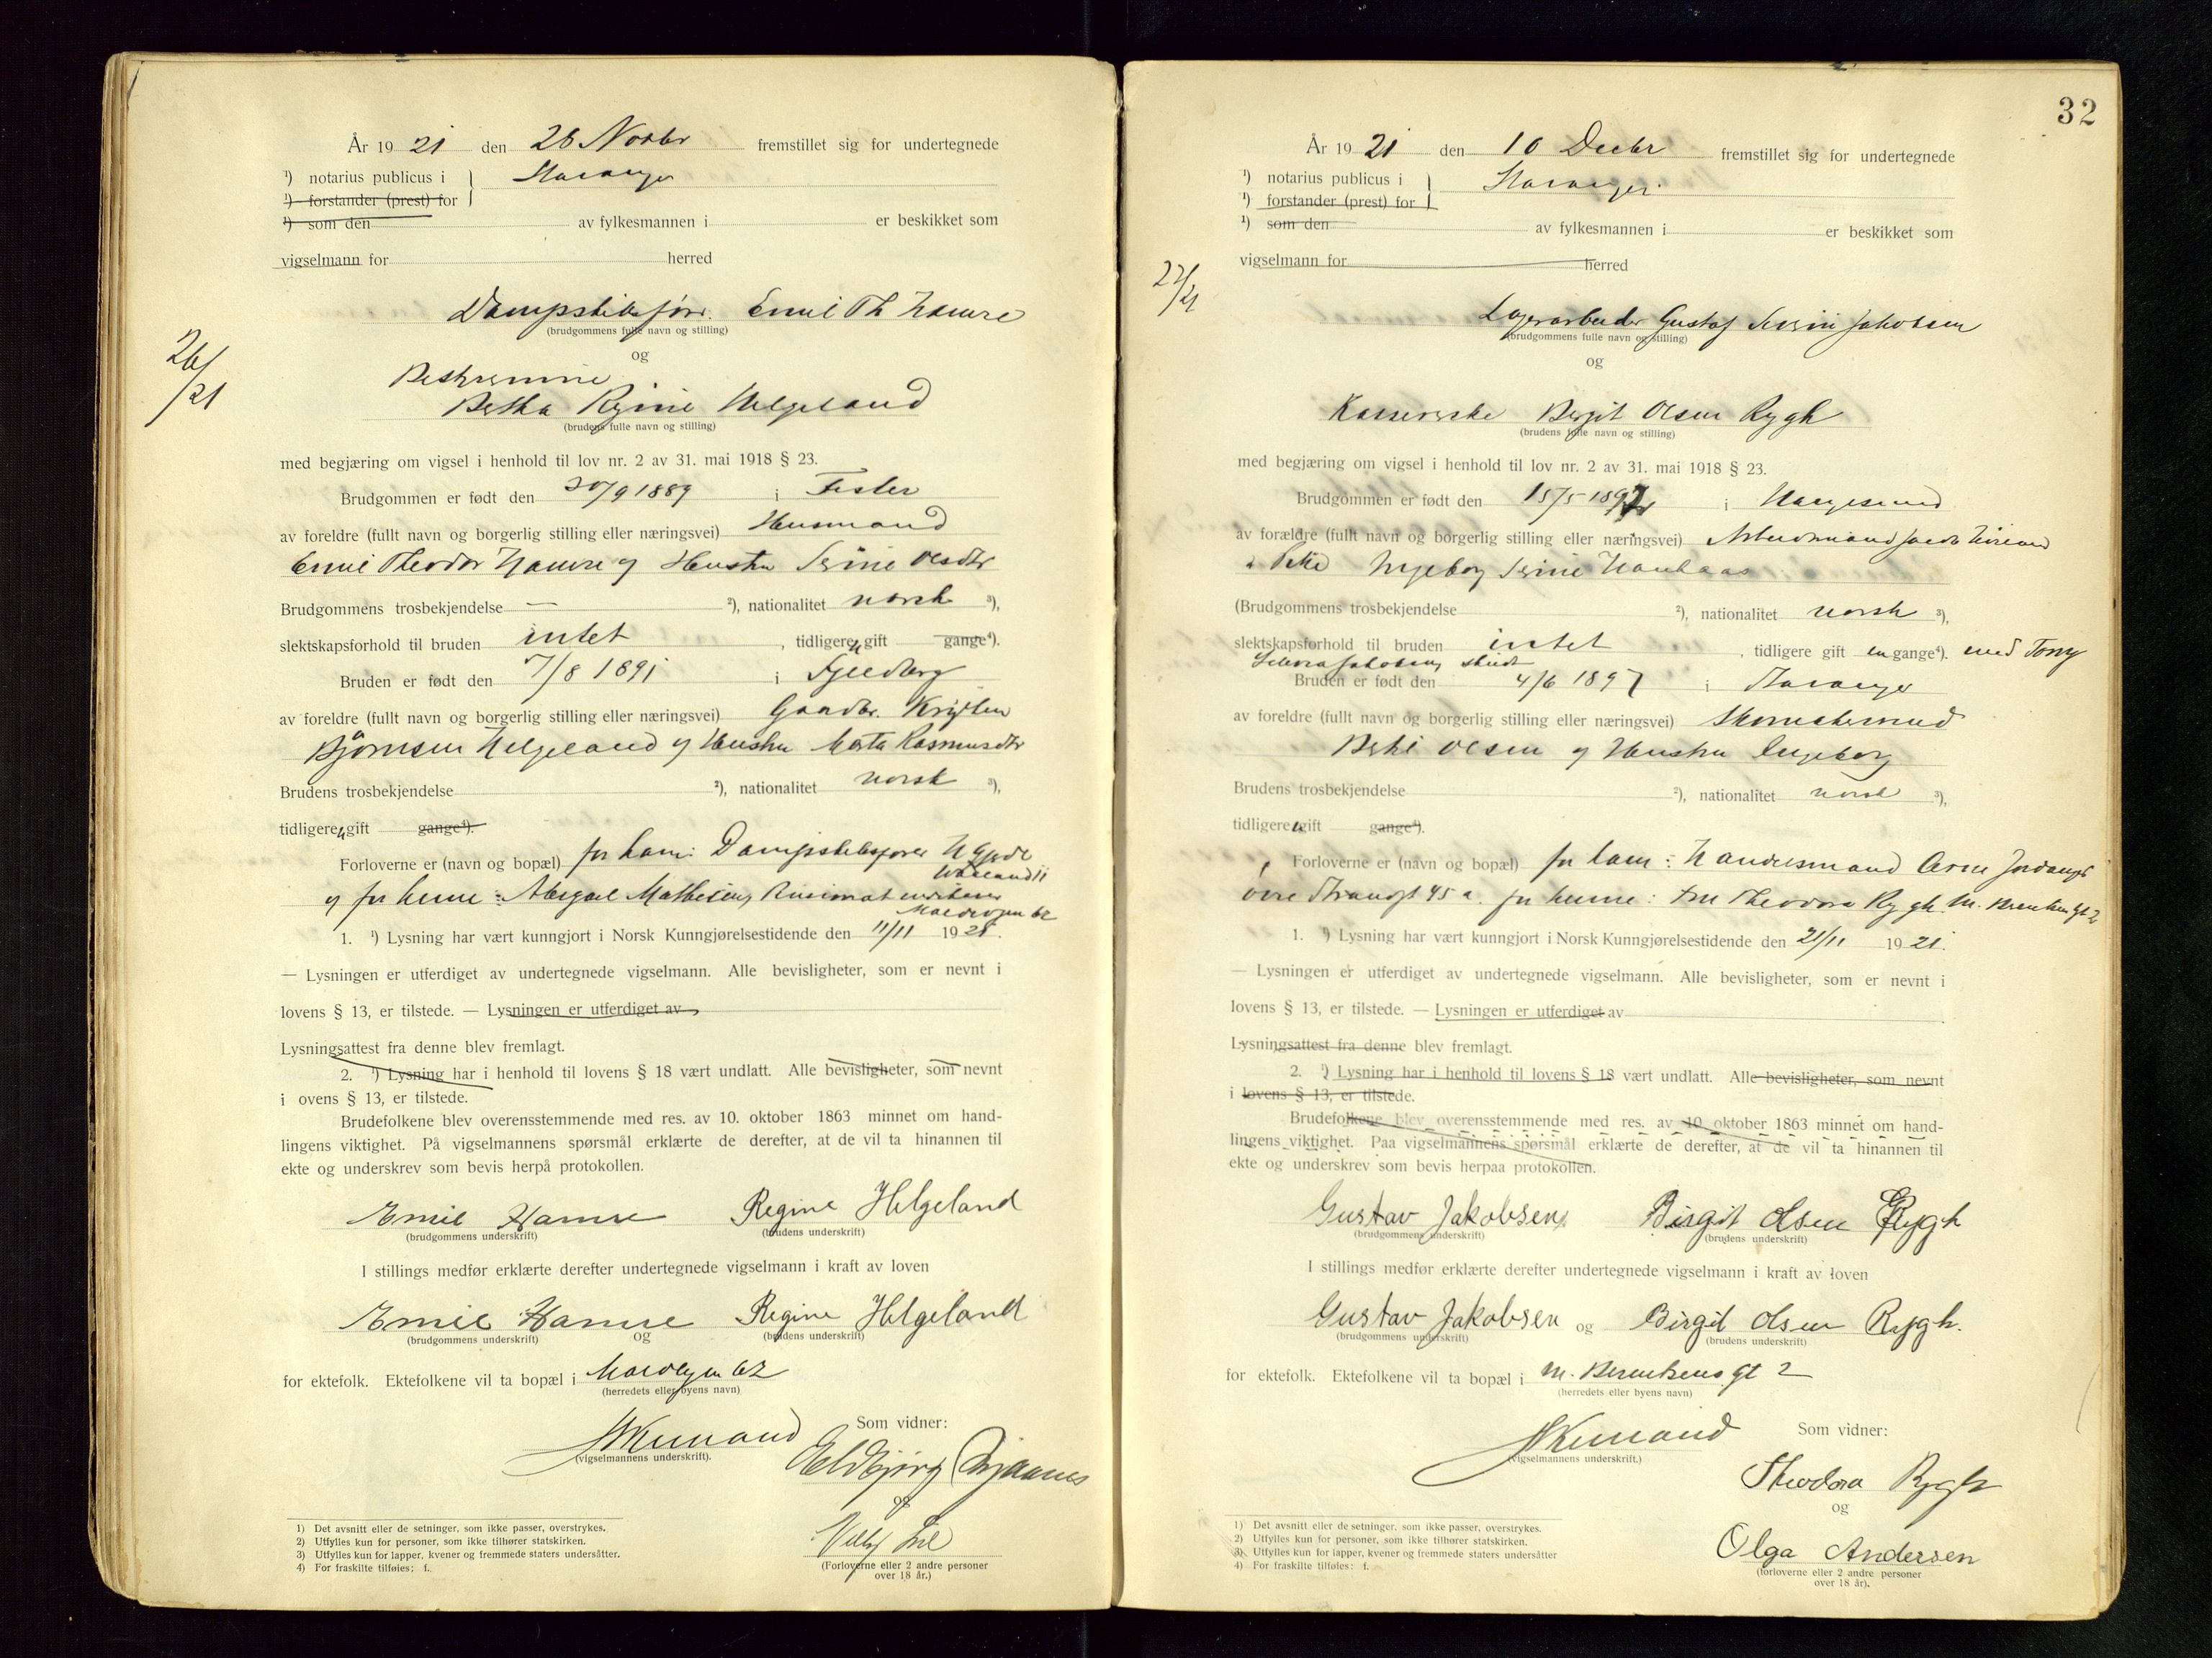 År 19 21 den 26 Novbr fremstillet sig for undertegnede
¹) notarius publicus i Stavanger
¹) forstander (prest) for
¹) som den av fylkesmannen i er beskikket som
vigselmann for herred
Dampskibsfører Emil Th Hamre
(brudgommens fulle navn og stilling)
og
26/21
Bestyrerinne
Betha Regine Helgeland
(brudens fulle navn og stilling)
med begjæring om vigsel i henhold til lov nr. 2 av 31. mai 1918 § 23.
Brudgommen er født den 30/9 1889 i Fister
av foreldre (fullt navn og borgerlig stilling eller næringsvei) Husmand
Emil Theodor Hamre og Hustru Serine Olsdtr
Brudgommens trosbekjendelse — ²), nationalitet norsk ³),
slektskapsforhold til bruden intet , tidligere u gift gange⁴).
Bruden er født den 7/8 1891 i Fjeldberg
av foreldre (fullt navn og borgerlig stilling eller næringsvei) Gaardbr.
Bjørnsen Helgeland og Hustru Marta Rasmusdtr
Brudens trosbekjendelse ²), nationalitet norsk ³),
tidligere u gift gange⁴).
Forloverne er (navn og bopæl) for ham: Dampskibsfører
og for henne: Abigael Mathiesen,
Maldvejen 62
1. ¹) Lysning har vært kunngjort i Norsk Kunngjørelsestidende den 11/11 1921.
— Lysningen er utferdiget av undertegnede vigselmann. Alle bevisligheter, som er nevnt i
lovens § 13, er tilstede. — Lysningen er utferdiget av
Lysningsattest fra denne blev fremlagt.
2. ¹) Lysning har i henhold til lovens § 18 vært undlatt. Alle bevisligheter, som nevnt
i ovens § 13, er tilstede.
Brudefolkene blev overensstemmende med res. av 10. oktober 1863 minnet om hand-
lingens viktighet. På vigselmannens spørsmål erklærte de derefter, at de vil ta hinannen til
ekte og underskrev som bevis herpå protokollen.
Emil Hamre Regine Helgeland
(brudgommens underskrift) (brudens underskrift)
I stillings medfør erklærte derefter undertegnede vigselmann i kraft av loven
Emil Hamre og Regine Helgeland
(brudgommens underskrift) (brudens underskrift)
for ektefolk. Ektefolkene vil ta bopæl i Maldvejen 62
(herredets eller byens navn)
(vigselmannens underskrift).
Som vidner:
Eldbjørg
og
Villy
(Forloverne eller 2 andre personer
over 18 år.)
1) Det avsnitt eller de setninger, som ikke passer, overstrykes.
2) Utfylles kun for personer, som ikke tilhører statskirken.
3) Utfylles kun for lapper, kvener og fremmede staters undersåtter.
4) For fraskilte tilføies: f.
32
År 19 21 den 10 Decbr fremstillet sig for undertegnede
¹) notarius publicus i Stavanger
¹) forstander (prest) for
¹) som den av fylkesmannen i er beskikket som
vigselmann for herred
27/21
Lagerarbeider Gustaf Serin Jakobsen
(brudgommens fulle navn og stilling)
og
Kassererske Birgit Olsen Rygh
(brudens fulle navn og stilling)
med begjæring om vigsel i henhold til lov nr. 2 av 31. mai 1918 § 23.
Brudgommen er født den 15/5 1897 i Haugesund
av forældre (fullt navn og borgerlig stilling eller næringsvei) Arbeidsmand
Ingeborg Serine
(Brudgommens trosbekjendelse ²), nationalitet norsk ³),
slektskapsforhold til bruden intet , tidligere gift en gange⁴). med Tony
Jakobsen, skilt
Bruden er født den 4/6 1897 i Stavanger
av foreldre (fullt navn og borgerlig stilling eller næringsvei) Skomakersvend
Bertil Olsen og Hustru Ingeborg
Brudens trosbekjendelse ²), nationalitet norsk ³),
tidligere u gift gange⁴).
Forloverne er (navn og bopæl) for ham: Handelsmand Arne
øvre Strandgt 45 a. for henne: Fru Theodora Rygh. M. Berentsens gt 2
1. ¹) Lysning har vært kunngjort i Norsk Kunngjørelsestidende den 21/11 1921.
— Lysningen er utferdiget av undertegnede vigselmann. Alle bevisligheter, som er nevnt i
lovens § 13, er tilstede. — Lysningen er utferdiget av
Lysningsattest fra denne blev fremlagt.
2. ¹) Lysning har i henhold til lovens § 18 vært undlatt. Alle bevisligheter, som nevnt
i lovens § 13, er tilstede.
Brudefolkene blev overensstemmende med res. av 10. oktober 1863 minnet om hand-
lingens viktighet. Paa vigselmannens spørsmål erklærte de derefter, at de vil ta hinannen til
ekte og underskrev som bevis herpaa protokollen.
Gustav Jakobsen Birgit Olsen Rygh
(brudgommens underskrift) (brudens underskrift)
I stillings medfør erklærte derefter undertegnede vigselmann i kraft av loven
Gustav Jakobsen og Birgit Olsen Rygh.
(brudgommens underskrift) (brudens underskrift)
for ektefolk. Ektefolkene vil ta bopæl i M. Berentsens gt 2
(herredets eller byens navn)
(vigselmannens underskrift.)
Som vidner:
Theodora Rygh
og
Olga Andersen
(forloverne eller 2 andre personer
over 18 år).
1) Det avsnitt eller de setninger, som ikke passer, overstrykes.
2) Utfylles kun for personer, som ikke tilhører statskirken.
3) Utfylles kun for lapper, kvener og fremmede staters undersåtter
4) For fraskilte tilføies: f.